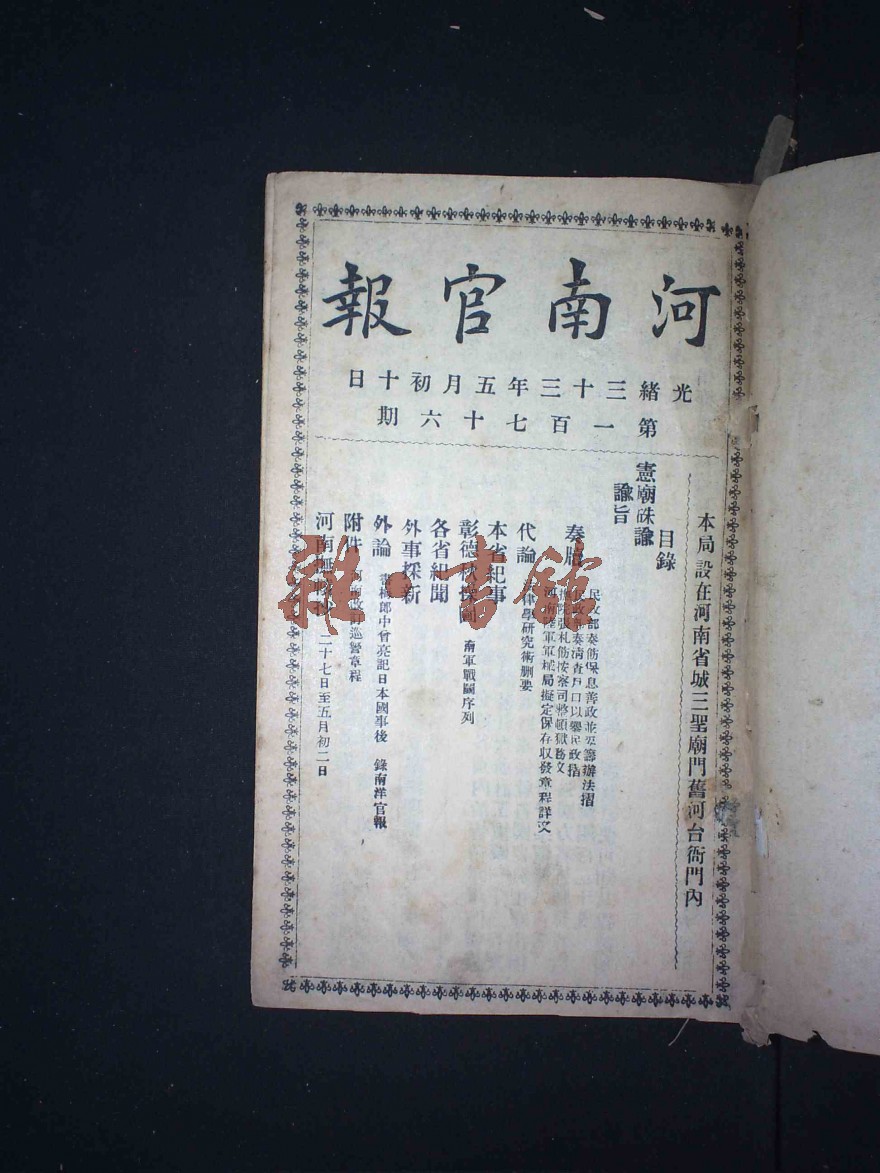 河南官報
光緒三十三年五月初十日
第一百七十六期
本局設在河南省城三聖廟門舊河台衙門內
目錄
憲廟硃諭
諭旨
奏牘
民政部奏飭保息善政並妥籌辦法摺
民政部奏清查戶口以釐民政摺
撫院張札飭按察司整頓獄務文
河南陸軍軍械局擬定保存收發章程詳文
代論
律學研究術刪要
本省紀事
彰德秋操圖 南軍戰鬬序列
各省紀聞
外事採新
外論 書梅郎中曾亮記日本國事後 錄南洋官報
附件 河南改訂巡警章程
河南 二十七日至五月初二日
雅·書館